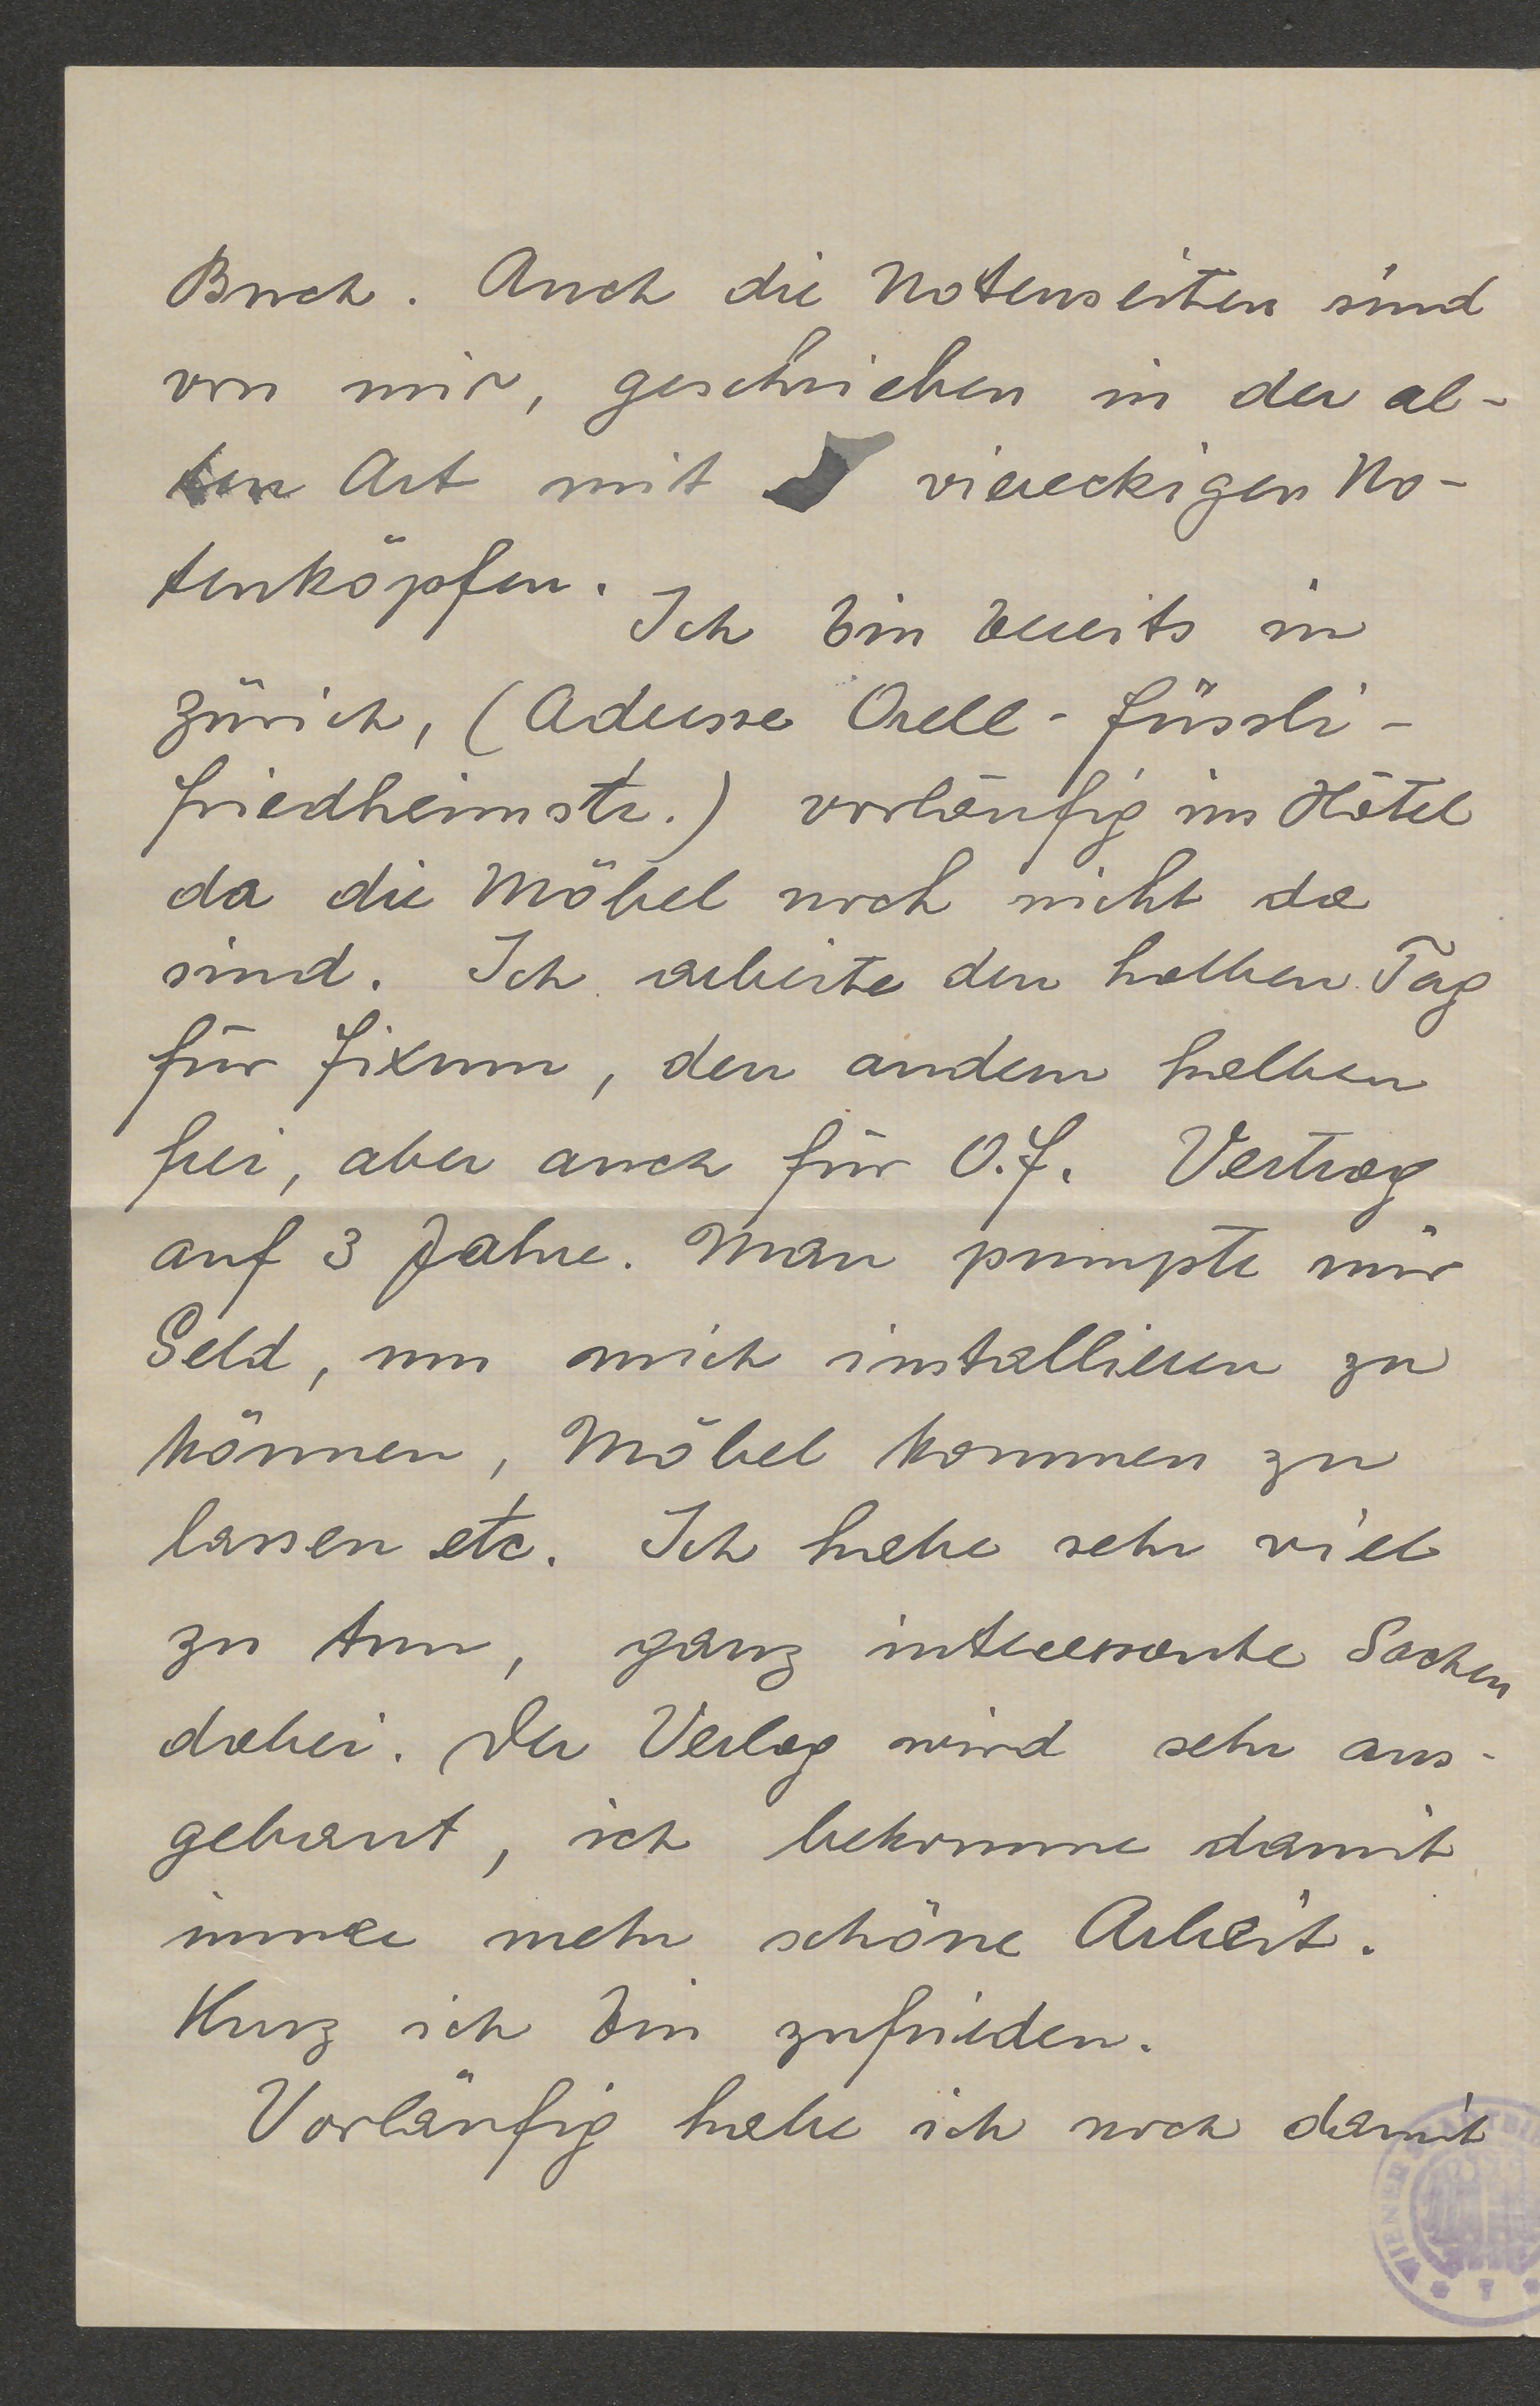 Buch. Auch die Notenseiten sind
von mir, geschrieben in der al-
ten Art mit viereckigen No-
tenköpfen.
Ich bin bereits in
Zürich, (Adresse Orell-Füssli-
Friedheimstr.) vorläufig im Hôtel
da die Möbel noch nicht da
sind. Ich arbeite den halben Tag
für Fixum, den andern halben
frei, aber auch für O.F. Vertrag
auf 3 Jahre. Man pumpte mir
Geld, um mich installieren zu
können, Möbel kommen zu
lassen etc. Ich habe sehr viel
zu tun, ganz interessante Sachen
dabei. Der Verlag wird sehr aus-
gebaut, ich bekomme damit
immer mehr schöne Arbeit.
Kurz ich bin zufrieden.
Vorläufig habe ich noch damit
WIENER